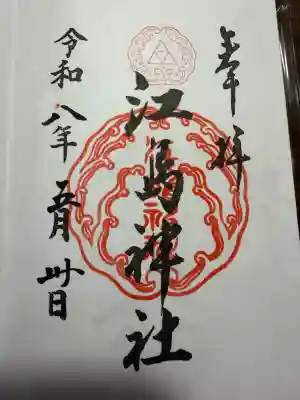 奉拝
江島神社
令和八年五月卅日